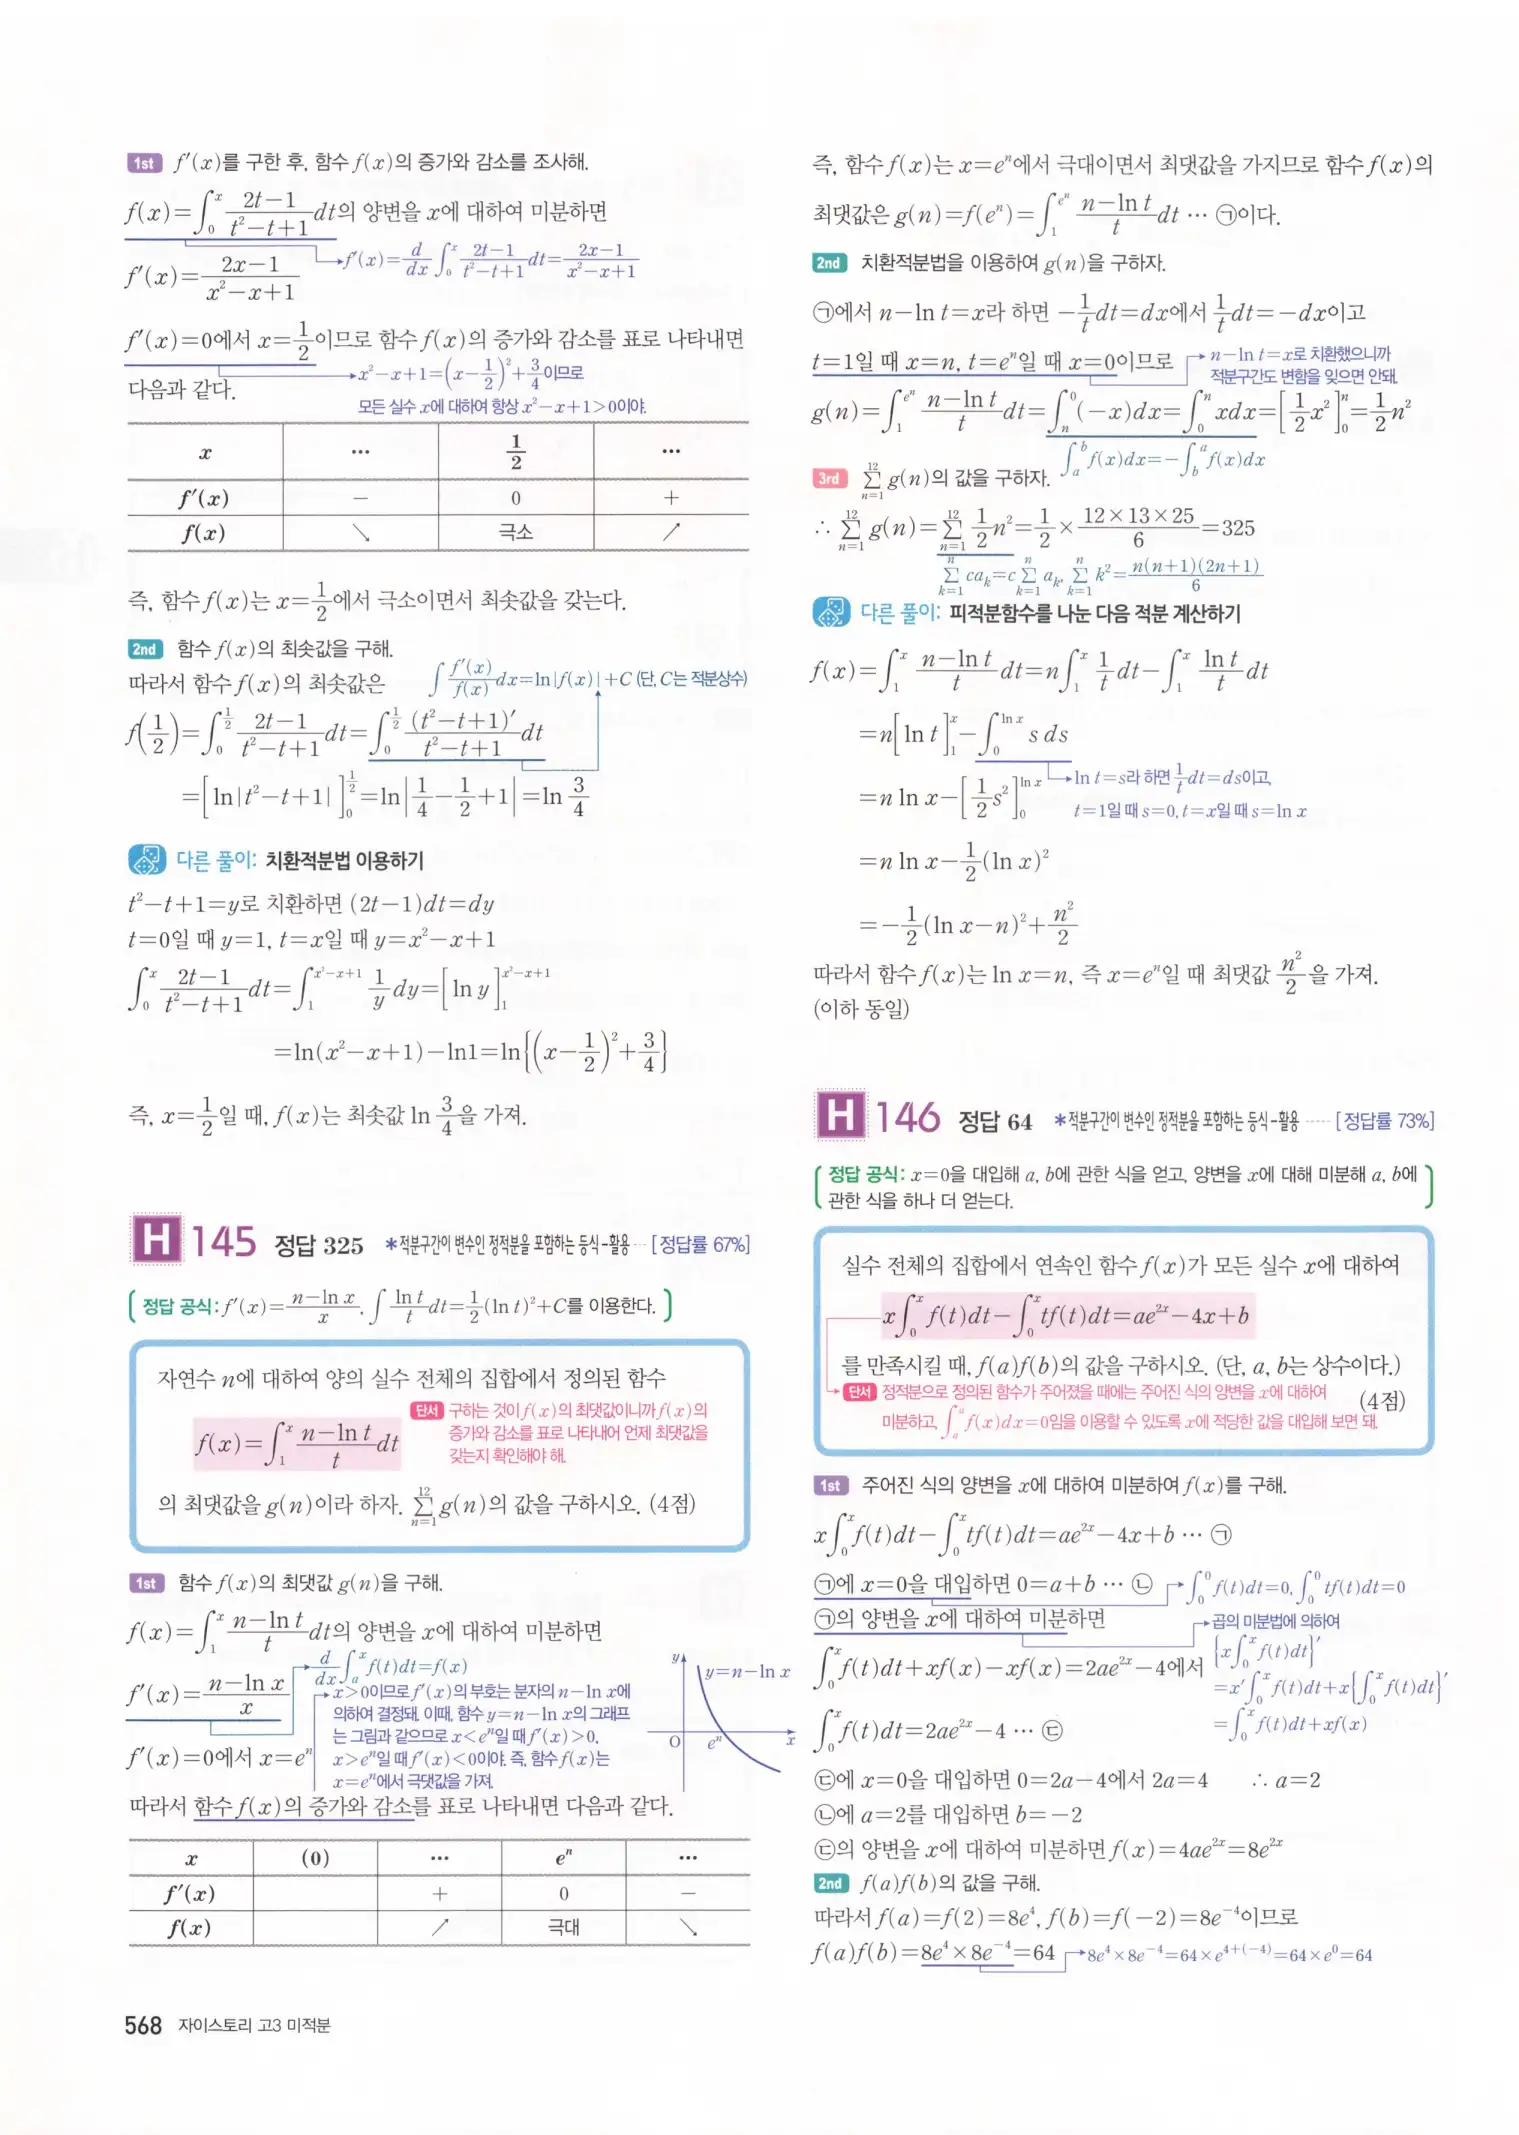 1st f'(x)를 구한 후, 함수 f(x)의 증가와 감소를 조사해.
f(x)=∫₀ˣ (2t−1)/(t²−t+1) dt의 양변을 x에 대하여 미분하면
f'(x)=(2x−1)/(x²−x+1)
f'(x)=d/dx ∫₀ˣ (2t−1)/(t²−t+1) dt=(2x−1)/(x²−x+1)
f'(x)=0에서 x=1/2이므로 함수 f(x)의 증가와 감소를 표로 나타내면
다음과 같다.
x²−x+1=(x−1/2)²+3/4이므로
모든 실수 x에 대하여 항상 x²−x+1>0이야.
x … 1/2 …
f'(x) − 0 +
f(x) ↘ 극소 ↗
즉, 함수 f(x)는 x=1/2에서 극소이면서 최솟값을 갖는다.
2nd 함수 f(x)의 최솟값을 구해.
따라서 함수 f(x)의 최솟값은
∫ f'(x)/f(x) dx=ln|f(x)|+C (단, C는 적분상수)
f(1/2)=∫₀^(1/2) (2t−1)/(t²−t+1) dt=∫₀^(1/2) (t²−t+1)'/(t²−t+1) dt
=[ln|t²−t+1|]₀^(1/2)=ln|1/4−1/2+1|=ln 3/4
다른 풀이: 치환적분법 이용하기
t²−t+1=y로 치환하면 (2t−1)dt=dy
t=0일 때 y=1, t=x일 때 y=x²−x+1
∫₀ˣ (2t−1)/(t²−t+1) dt=∫₁^(x²−x+1) 1/y dy=[ln y]₁^(x²−x+1)
=ln(x²−x+1)−ln1=ln{(x−1/2)²+3/4}
즉, x=1/2일 때, f(x)는 최솟값 ln 3/4을 가져.
H 145 정답 325 *적분구간이 변수인 정적분을 포함하는 등식-활용 ··· [정답률 67%]
정답 공식: f'(x)=(n−ln x)/x, ∫ (ln t)/t dt=1/2(ln t)²+C를 이용한다.
자연수 n에 대하여 양의 실수 전체의 집합에서 정의된 함수
f(x)=∫₁ˣ (n−ln t)/t dt
단서 구하는 것이 f(x)의 최댓값이니까 f(x)의
증가와 감소를 표로 나타내어 언제 최댓값을
갖는지 확인해야 해.
의 최댓값을 g(n)이라 하자. Σ(n=1→12) g(n)의 값을 구하시오. (4점)
1st 함수 f(x)의 최댓값 g(n)을 구해.
f(x)=∫₁ˣ (n−ln t)/t dt의 양변을 x에 대하여 미분하면
f'(x)=(n−ln x)/x
d/dx ∫ₐˣ f(t)dt=f(x)
x>0이므로 f'(x)의 부호는 분자의 n−ln x에
의하여 결정돼. 이때, 함수 y=n−ln x의 그래프
는 그림과 같으므로 x<eⁿ일 때 f'(x)>0,
x>eⁿ일 때 f'(x)<0이야. 즉, 함수 f(x)는
x=eⁿ에서 극댓값을 가져.
y y=n−ln x
O eⁿ x
f'(x)=0에서 x=eⁿ
따라서 함수 f(x)의 증가와 감소를 표로 나타내면 다음과 같다.
x (0) … eⁿ …
f'(x) + 0 −
f(x) ↗ 극대 ↘
568 자이스토리 고3 미적분
즉, 함수 f(x)는 x=eⁿ에서 극대이면서 최댓값을 가지므로 함수 f(x)의
최댓값은 g(n)=f(eⁿ)=∫₁^(eⁿ) (n−ln t)/t dt … ㉠이다.
2nd 치환적분법을 이용하여 g(n)을 구하자.
㉠에서 n−ln t=x라 하면 −1/t dt=dx에서 1/t dt=−dx이고
t=1일 때 x=n, t=eⁿ일 때 x=0이므로
n−ln t=x로 치환했으니까
적분구간도 변함을 잊으면 안돼.
g(n)=∫₁^(eⁿ) (n−ln t)/t dt=∫ₙ⁰ (−x)dx=∫₀ⁿ xdx=[1/2 x²]₀ⁿ=1/2 n²
∫ₐᵇ f(x)dx=−∫_bᵃ f(x)dx
3rd Σ(n=1→12) g(n)의 값을 구하자.
∴ Σ(n=1→12) g(n)=Σ(n=1→12) 1/2 n²=1/2×(12×13×25)/6=325
Σ(k=1→n) caₖ=c Σ(k=1→n) aₖ, Σ(k=1→n) k²=n(n+1)(2n+1)/6
다른 풀이: 피적분함수를 나눈 다음 적분 계산하기
f(x)=∫₁ˣ (n−ln t)/t dt=n∫₁ˣ 1/t dt−∫₁ˣ (ln t)/t dt
=n[ln t]₁ˣ−∫₀^(ln x) s ds
=n ln x−[1/2 s²]₀^(ln x)
ln t=s라 하면 1/t dt=ds이고,
t=1일 때 s=0, t=x일 때 s=ln x
=n ln x−1/2(ln x)²
=−1/2(ln x−n)²+n²/2
따라서 함수 f(x)는 ln x=n, 즉 x=eⁿ일 때 최댓값 n²/2을 가져.
(이하 동일)
H 146 정답 64 *적분구간이 변수인 정적분을 포함하는 등식-활용 ····· [정답률 73%]
정답 공식: x=0을 대입해 a, b에 관한 식을 얻고, 양변을 x에 대해 미분해 a, b에
관한 식을 하나 더 얻는다.
실수 전체의 집합에서 연속인 함수 f(x)가 모든 실수 x에 대하여
x∫₀ˣ f(t)dt−∫₀ˣ tf(t)dt=ae²ˣ−4x+b
를 만족시킬 때, f(a)f(b)의 값을 구하시오. (단, a, b는 상수이다.)
(4점)
단서 정적분으로 정의된 함수가 주어졌을 때에는 주어진 식의 양변을 x에 대하여
미분하고, ∫ₐᵃ f(x)dx=0임을 이용할 수 있도록 x에 적당한 값을 대입해 보면 돼.
1st 주어진 식의 양변을 x에 대하여 미분하여 f(x)를 구해.
x∫₀ˣ f(t)dt−∫₀ˣ tf(t)dt=ae²ˣ−4x+b … ㉠
㉠에 x=0을 대입하면 0=a+b … ㉡
∫₀⁰ f(t)dt=0, ∫₀⁰ tf(t)dt=0
㉠의 양변을 x에 대하여 미분하면
곱의 미분법에 의하여
{x∫₀ˣ f(t)dt}'
=x'∫₀ˣ f(t)dt+x{∫₀ˣ f(t)dt}'
=∫₀ˣ f(t)dt+xf(x)
∫₀ˣ f(t)dt+xf(x)−xf(x)=2ae²ˣ−4에서
∫₀ˣ f(t)dt=2ae²ˣ−4 … ㉢
㉢에 x=0을 대입하면 0=2a−4에서 2a=4 ∴ a=2
㉡에 a=2를 대입하면 b=−2
㉢의 양변을 x에 대하여 미분하면 f(x)=4ae²ˣ=8e²ˣ
2nd f(a)f(b)의 값을 구해.
따라서 f(a)=f(2)=8e⁴, f(b)=f(−2)=8e⁻⁴이므로
f(a)f(b)=8e⁴×8e⁻⁴=64
8e⁴×8e⁻⁴=64×e⁴⁺⁽⁻⁴⁾=64×e⁰=64